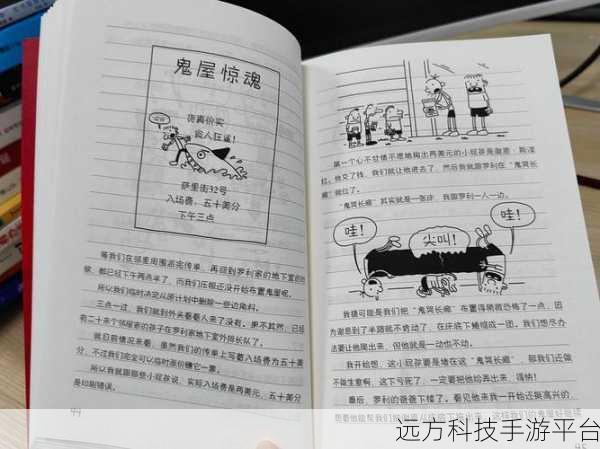 鬼屋惊魂
货真价实
骇人狂鲨！
萨里街32号
入场费，五十美分
下午三点
等我们在邻里周围派完传单，再回到罗利家的地下室的时
候，都已经下午两点半了，而我们压根还没开始布置鬼屋呢。
所以我们临时决定从原计划中删除一些边角料。
三点一过，我们就到外头看看人来了没有。果不其然，已经
有二十来个邻居家的孩子在罗利家地下室外排长队了。
就目前情况来看，虽然我们的传单上写着入场费为五十美
分，不过我们完全可以临时涨价赚它一票。
所以我就跟那些小屁孩说，实际入场费是两美元，五十美分
是印刷错误。
44
第一个心不甘情不愿地掏出两美元的小屁孩是谢恩·斯涅
拉。他交了钱，我们就让他进去了，然后我就跟罗利在“鬼哭长
廊”就位了。
“鬼哭长廊”其实就是一张床，我跟罗利一人一边。
哇！
尖叫！
哇！
我猜可能是我们把“鬼哭长廊”布置得稍微恐怖了一点，因
为谢恩到了半路就不肯动了，在床底下蜷缩成一团。我们想尽办
法要让他爬出来，但他就是一动也不动。
我开始想，这小屁孩要是堵在这“鬼哭长廊”，那我们还做
不做生意啊，这下亏死了，一定要把他给弄出来，得快！
最后，罗利的爸爸下楼了。看见他来我一开始还挺高兴的，
远方科技手游平台